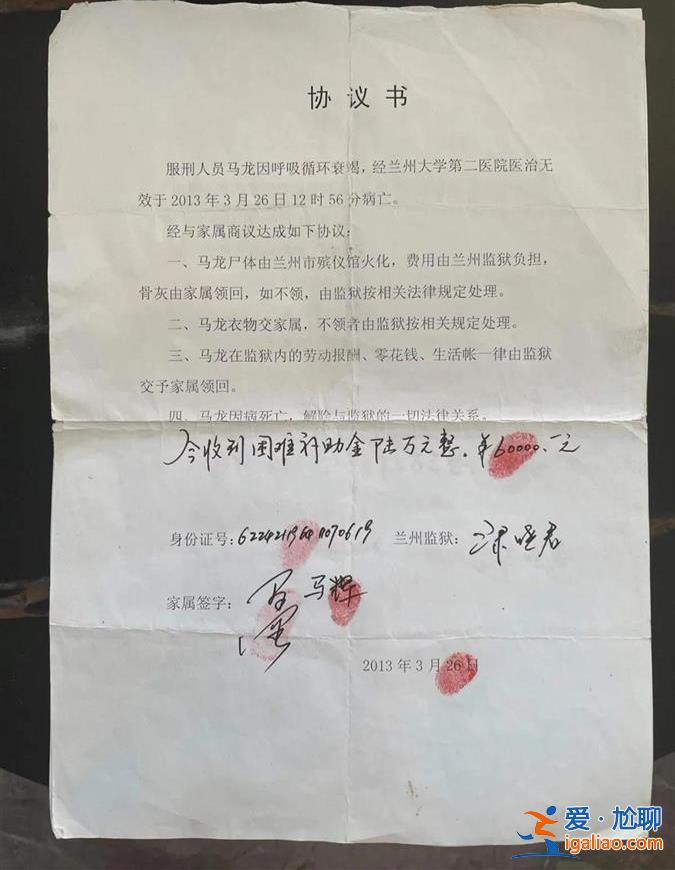 协 议 书
服刑人员马龙因呼吸循环衰竭，经兰州大学第二医院医治无
效于2013年3月26日12时56分病亡。
经与家属商议达成如下协议：
一、马龙尸体由兰州市殡仪馆火化，费用由兰州监狱负担，
骨灰由家属领回，如不领，由监狱按相关法律规定处理。
二、马龙衣物交家属，不领者由监狱按相关规定处理。
三、马龙在监狱内的劳动报酬、零花钱、生活帐一律由监狱
交予家属领回。
四、马龙因病死亡，解除与监狱的一切法律关系。
今收到困难补助金陆万元整。￥60000.元
身份证号： 兰州监狱：
家属签字： 马辉
2013年3月26日
爱·尬聊
igaliao.com